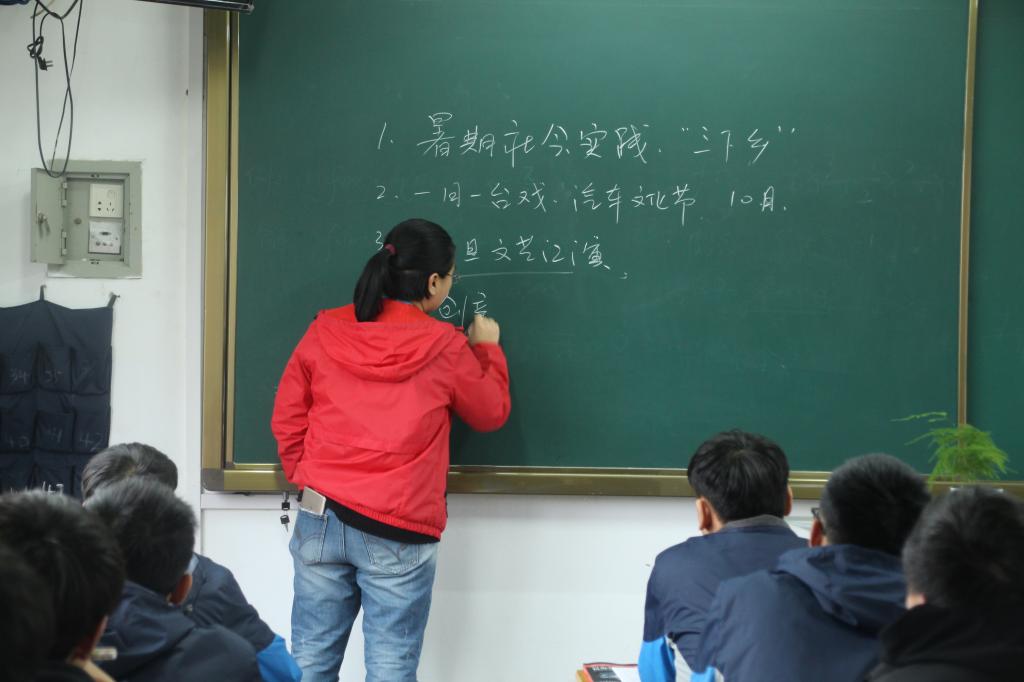 1. 暑期社会实践. “三下乡”
2. 一月一台戏. 汽车文化节. 10月.
3. 旦文艺汇演,
创意
34 35
40 41 42